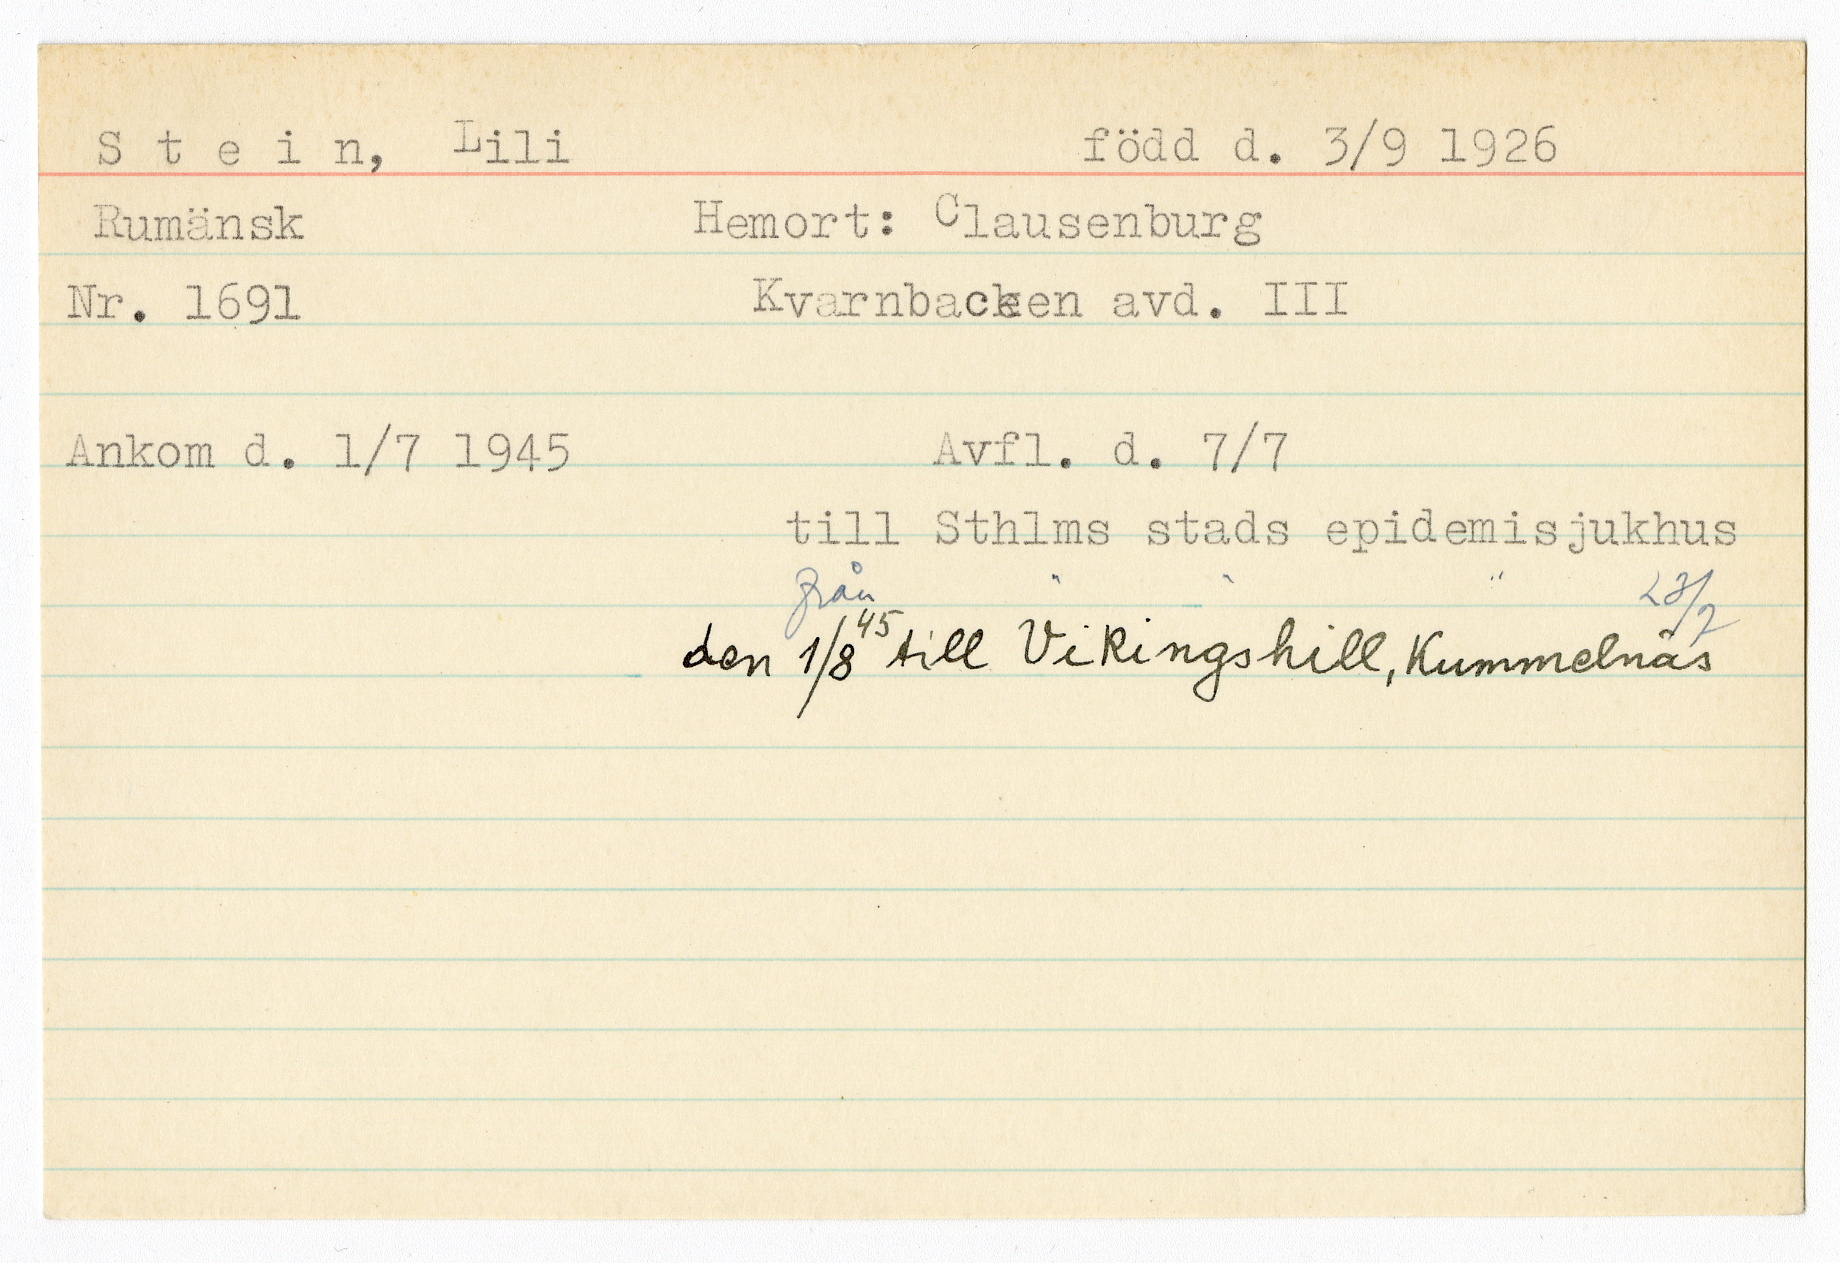 Stein, Lili född d. 3/9 1926
Rumänsk Hemort: Clausenburg
Nr. 1691 Kvarnbacken avd. III
Ankom d. 1/7 1945 Avfl. d. 7/7
till Sthlms stads epidemisjukhus
från " " " 23/7
den 1/8 45 till Vikingshill, Kummelnäs